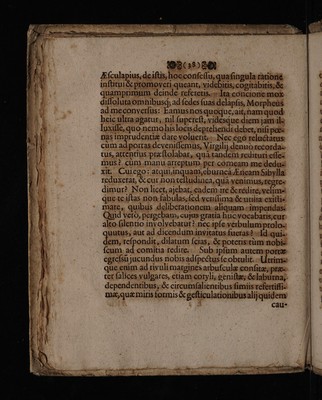 (28)
Æsculapius, de istis, hoc consessu, qua singula ratione
institui & promoveri queant, videbitis, cogitabitis, &
quamprimum deinde referetis. Ita concione mox
dissoluta omnibusq; ad sedes suas delapsis, Morpheus
ad me conversus: Eamus nos quoque, ait, nam quod
heic ultra agatur, nil superest, videsque diem jam il-
luxisse, quo nemo his locis deprehendi debet, nisi pœ-
nas imprudentiæ dare voluerit. Nec ego reluctatus
cum ad portas devenissemus, Virgilij denuò recorda-
tus, attentius præstolabar, quâ tandem redituri esse-
mus? cum manu arreptum per corneam me dedu-
xit. Cui ego: atqui, inquam, eburneâ Æneam Sibylla
reduxerat, & cur non testudinea, quâ venimus, regre-
dimur? Non licet, ajebat, eadem ire & redire, velim-
que te istas non fabulas, sed verissima & unicè existi-
mare, quibus deliberationem aliquam impendas
Quid verò, pergebam, cujus gratia huc vocabaris, cur
alto silentio involvebatur? nec ipse verbulum prolo-
quutus, aut ad dicendum invitatus fueras? Id qui-
dem, respondit, dilatum scias, & poteris tum nobis-
cum ad comitia redire. Sub ipsum autem portæ
egressum jucundus nobis adspectus se obtulit. Utrim-
que enim ad rivuli margines arbusculæ consitæ, præ-
ter salices vulgares, etiam cnyti, genistæ, & laburna,
dependentibus, & circumsalientibus simiis refertissi-
mæ, quæ miris formis & gesticulationibus alij quidem
cau-